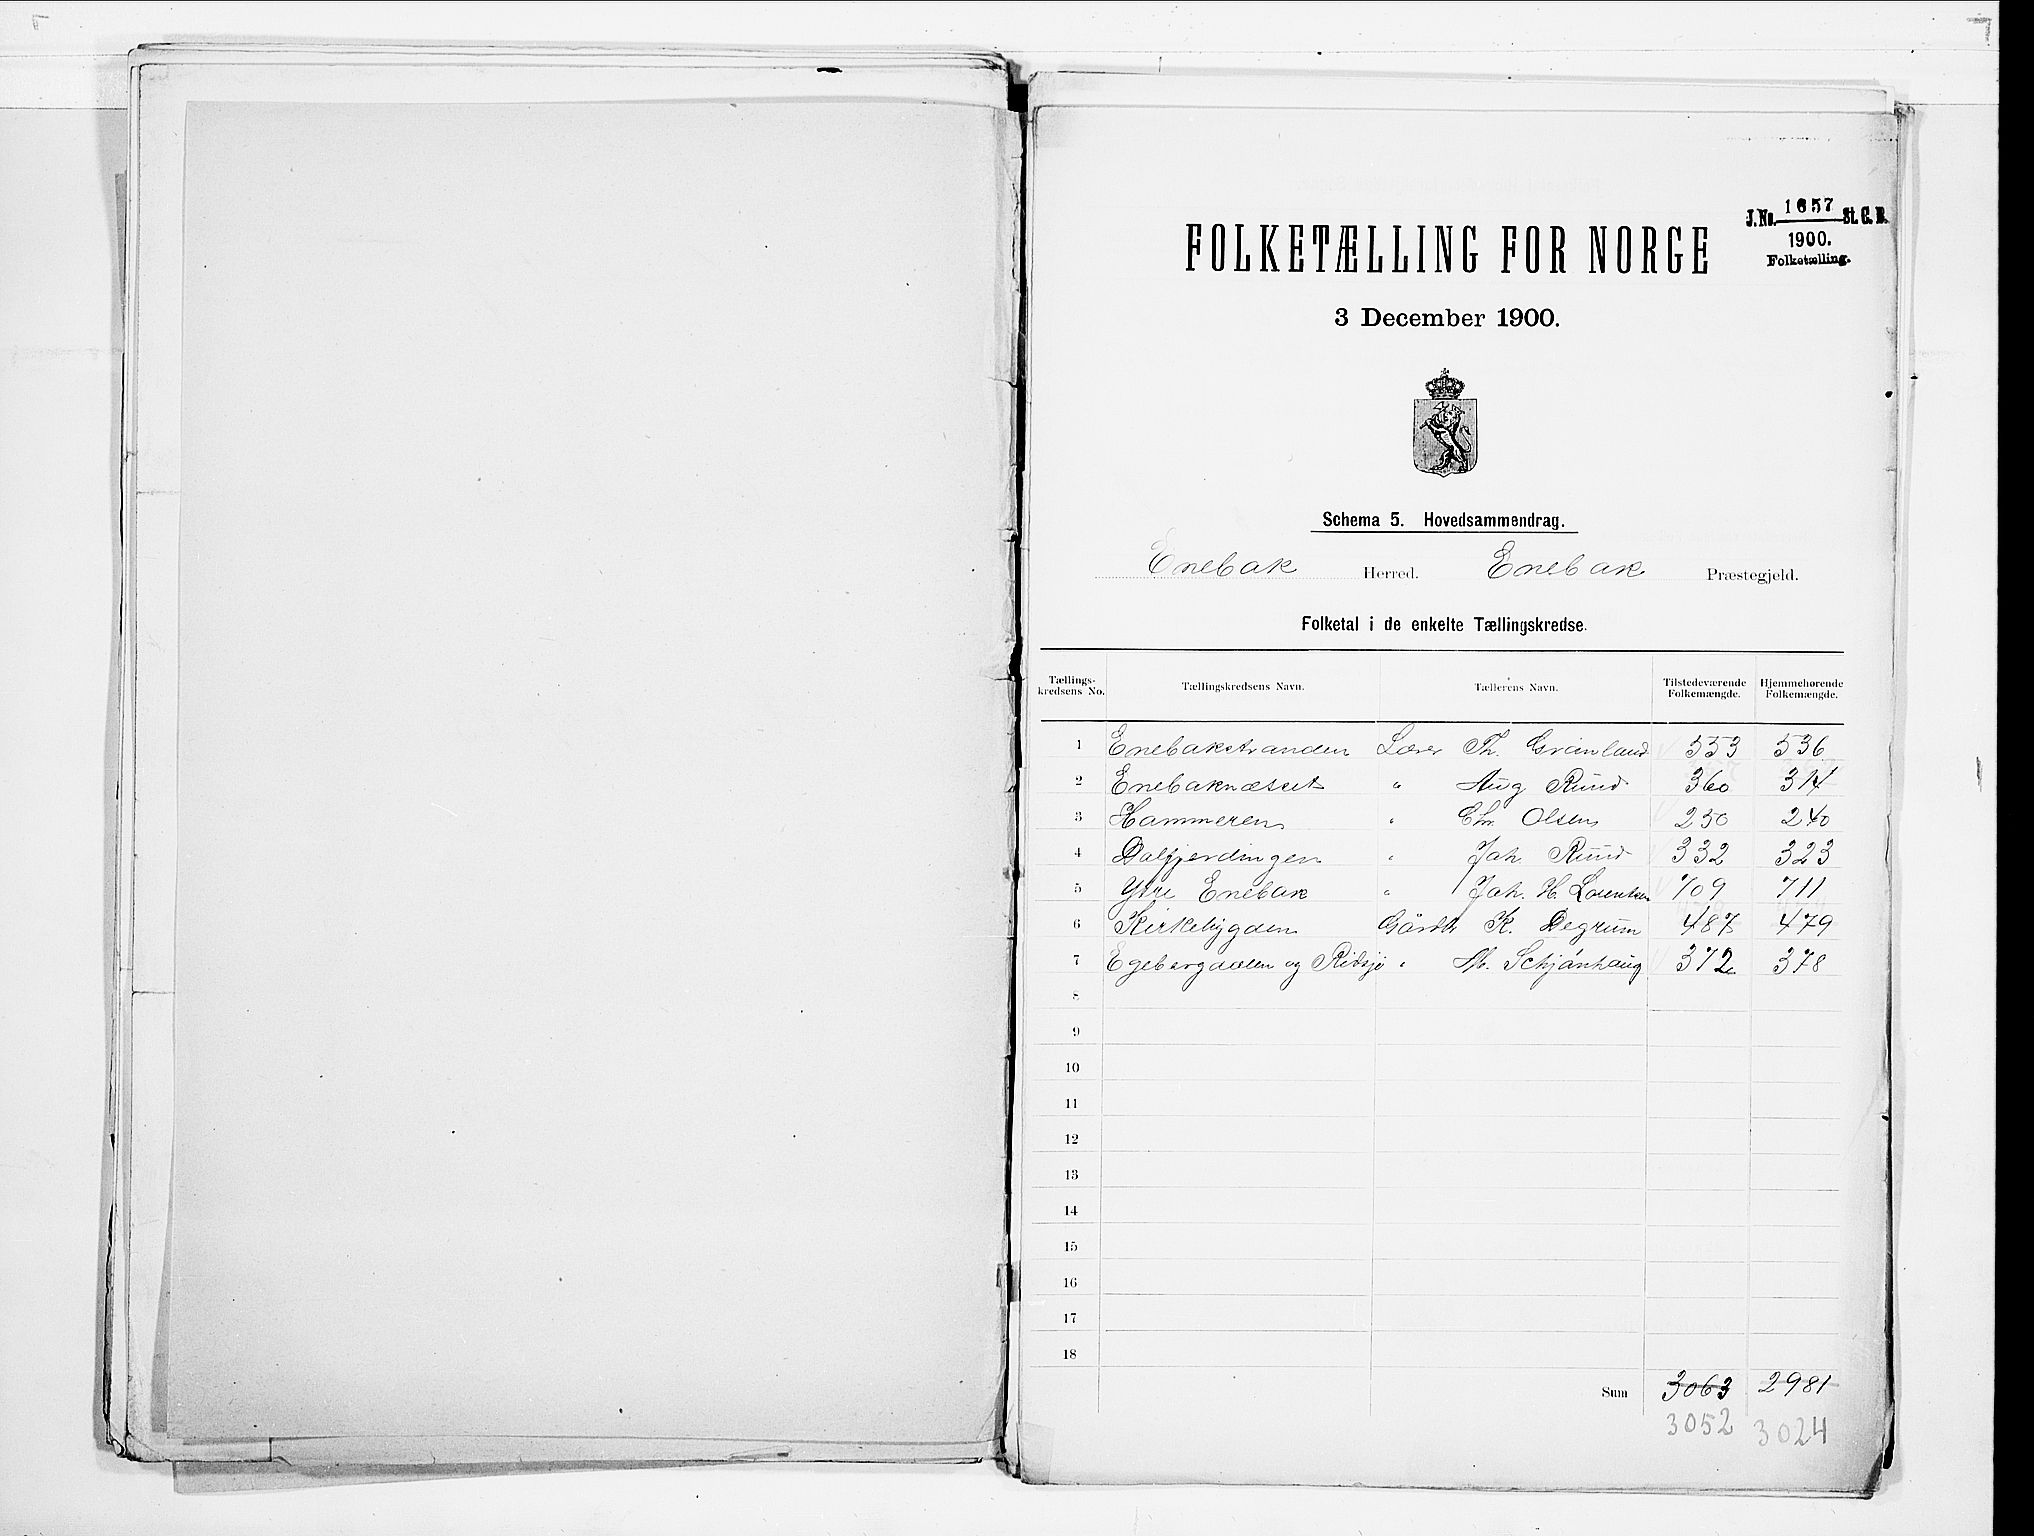 J.No. 1657 St. C. B.
1900.
Folketælling.
FOLKETÆLLING FOR NORGE
3 December 1900.
Schema 5. Hovedsammendrag.
Enebak Herred. Enebak Præstegjeld.
Folketal i de enkelte Tællingskredse.
Tællings-kredsens No. Tællingskredsens Navn. Tællerens Navn. Tilstedeværende Folkemængde. Hjemmehørende Folkemængde.
1 Enebakstranden Lærer Th. Grönland 553 536
2 Enebaknæsset " Aug Ruud 360 314
3 Hammeren " Chr. Olsen 250 240
4 Dalfjerdingen " Joh. Ruud 332 323
5 Ytre Enebak " Joh. H. Lorentzen 709 711
6 Kirkebygden Gårdb K. Degrum 487 479
7 Egebergdalen og Ridsjö " M. Schjønhaug 372 378
8
9
10
11
12
13
14
15
16
17
18
Sum 3063 2981
3052 3024